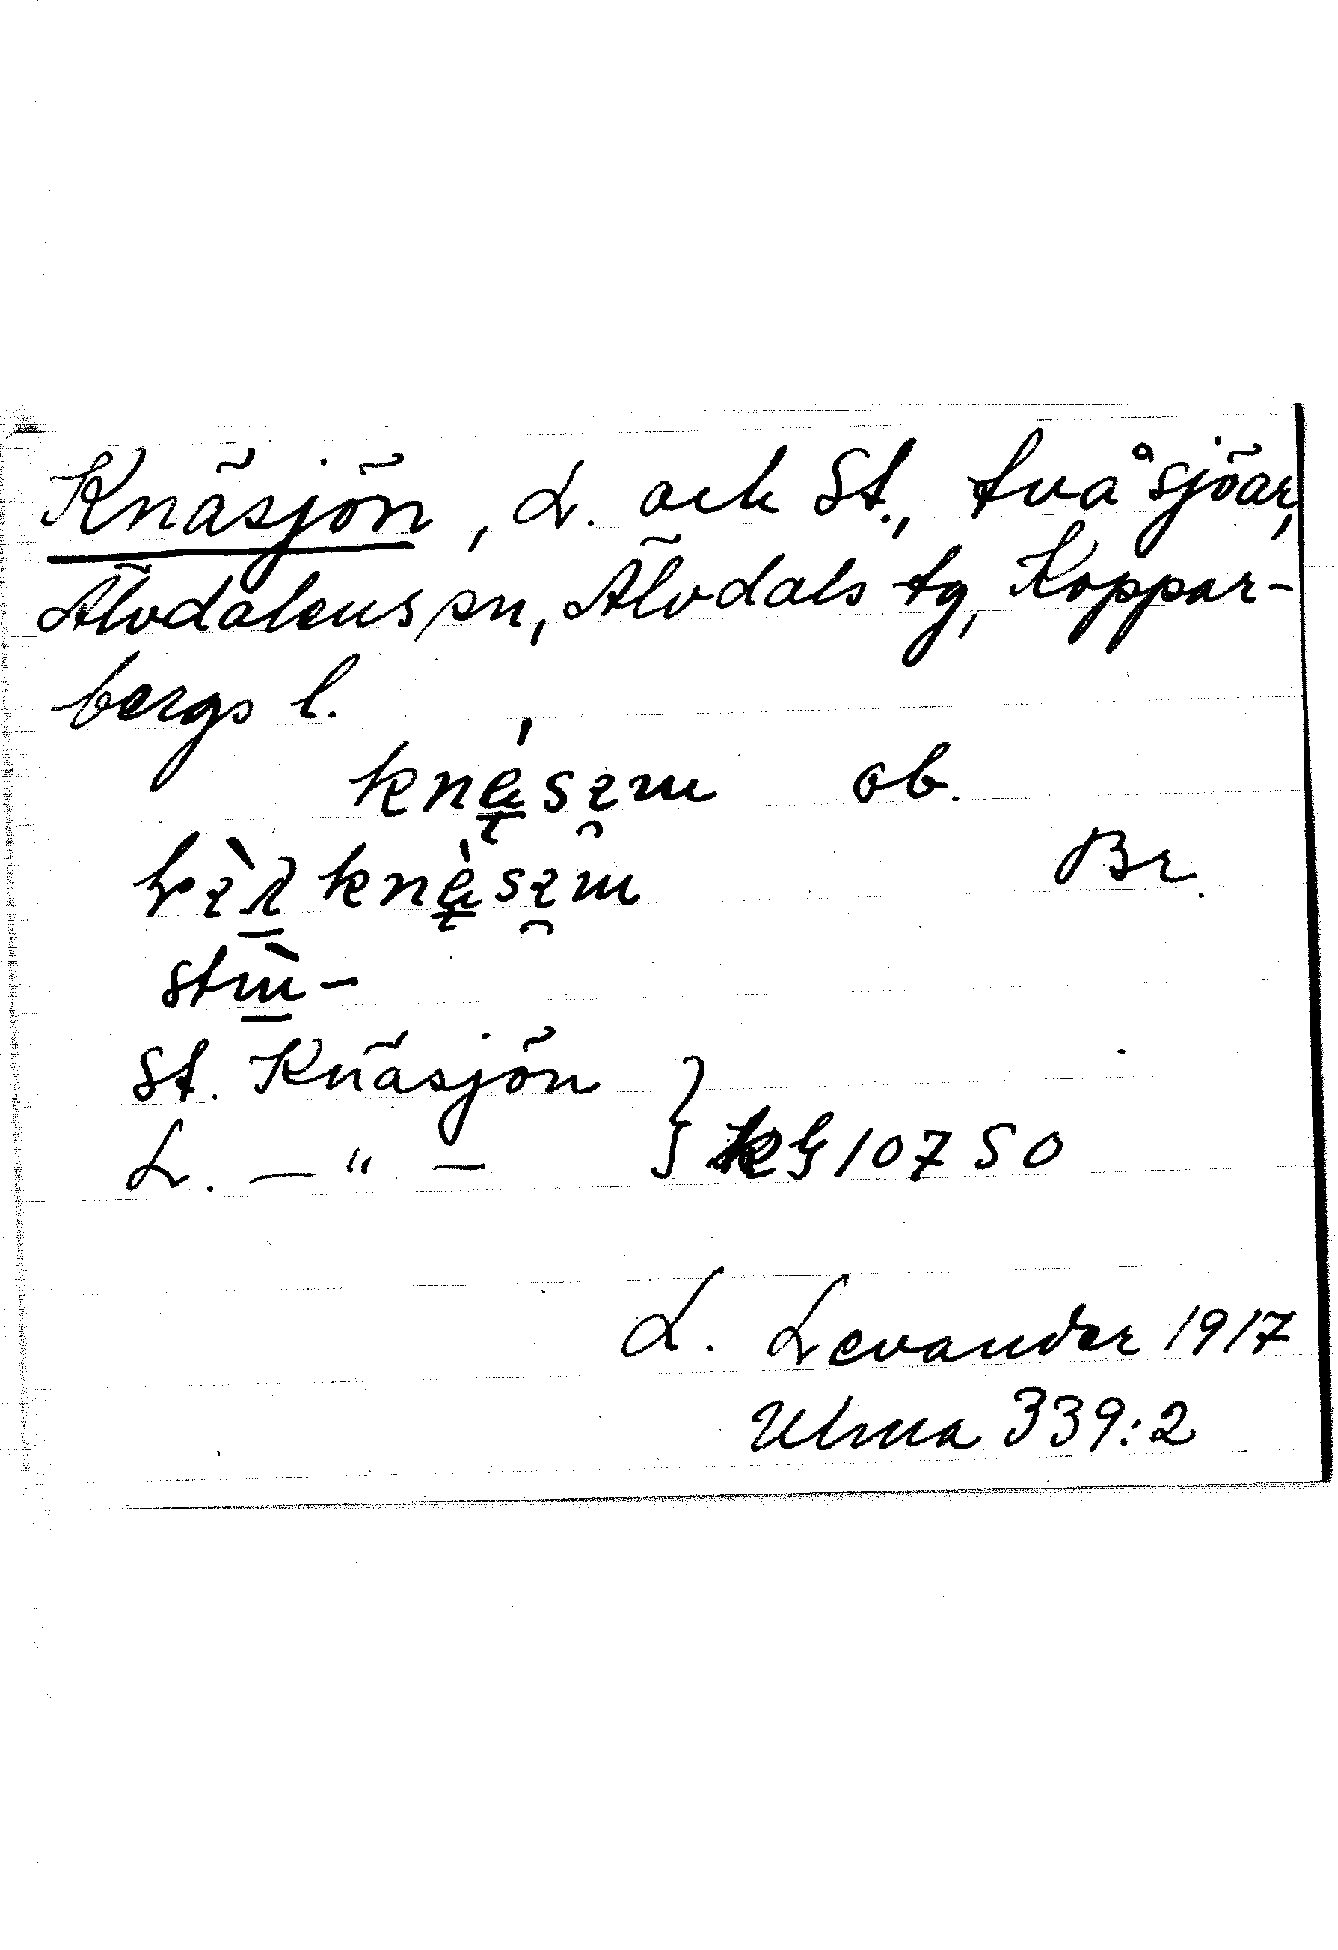 Knäsjön, L. och St., två sjöar,
Älvdalens sn, Älvdals tg, Koppar-
bergs l.
ob.
Br.
St. Knäsjön
L. — " —
KG 10750
L. Levander 1917
Ulma 339:2